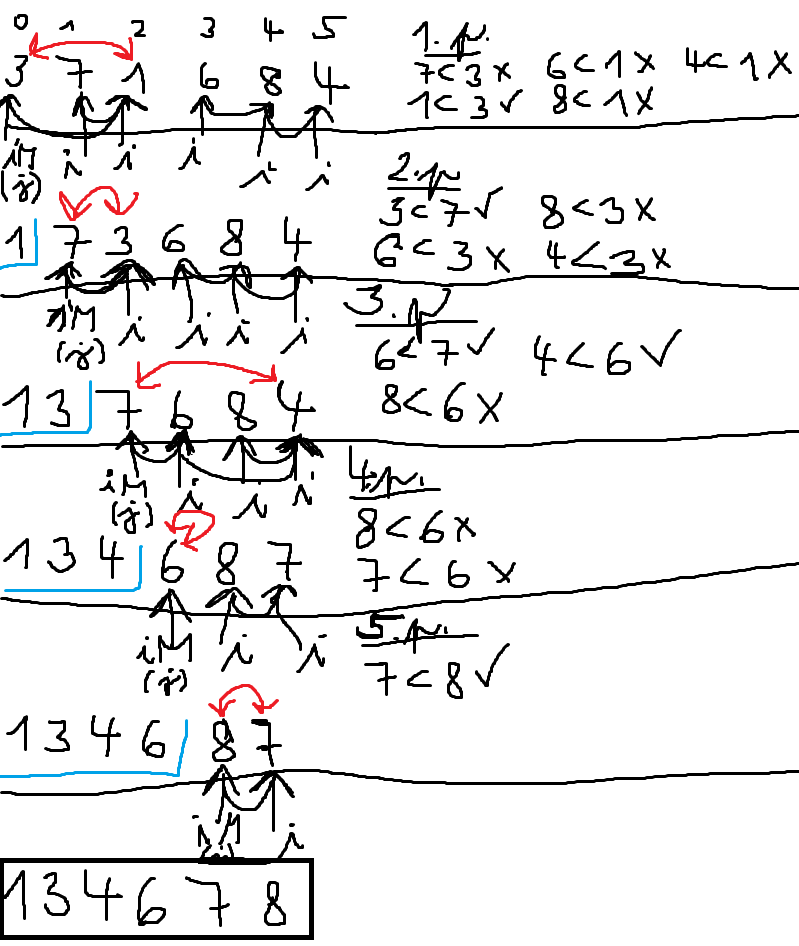 0 1 2 3 4 5
3 7 1 6 8 4
iM i i i i i
(j)
1. p.
7<3 x 6<1 x 4<1 x
1<3 ✓ 8<1 x
1 7 3 6 8 4
iM i i i i
(j)
2. p.
3<7 ✓ 8<3 x
6<3 x 4<3 x
1 3 7 6 8 4
iM i i i
(j)
3. p.
6<7 ✓ 4<6 ✓
8<6 x
1 3 4 6 8 7
iM i i
(j)
4. p.
8<6 x
7<6 x
1 3 4 6 8 7
iM i
(j)
5. p.
7<8 ✓
1 3 4 6 7 8